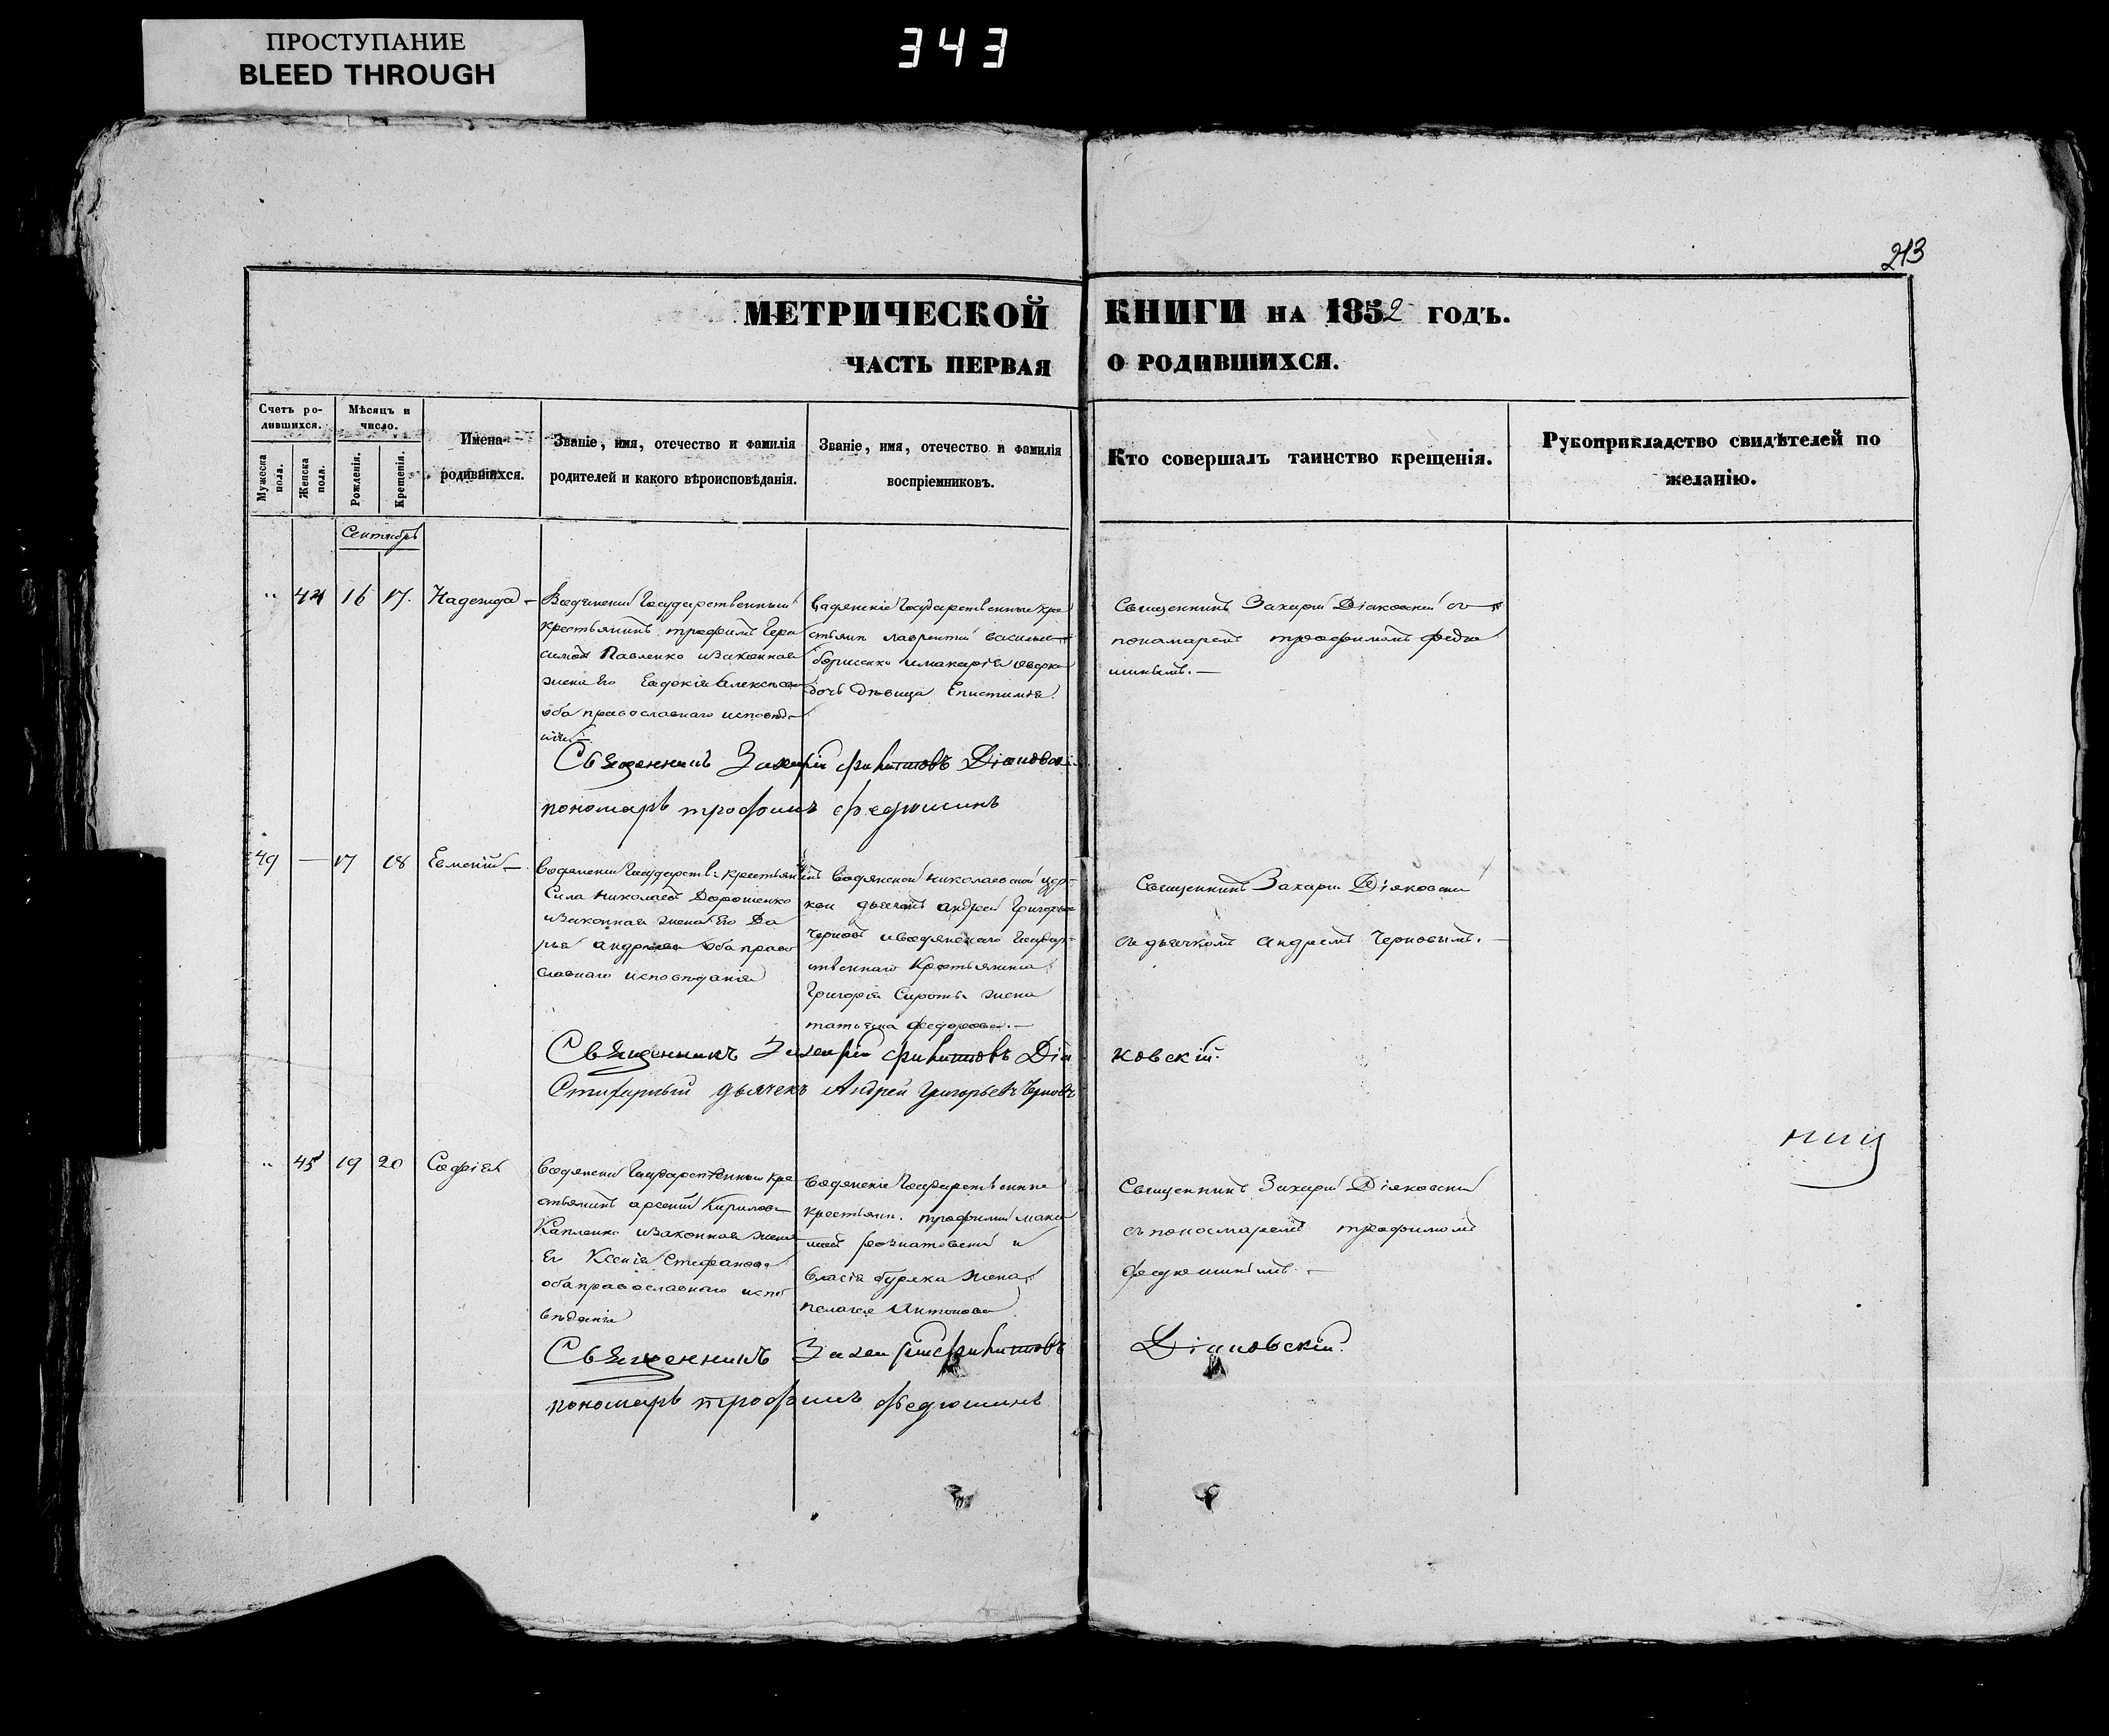 ПРОСТУПАНИЕ
BLEED THROUGH
343
213
МЕТРИЧЕСКОЙ КНИГИ НА 1852 ГОДЪ.
ЧАСТЬ ПЕРВАЯ О РОДИВШИХСЯ.
Счетъ ро-
дившихся.
Мужеска пола.
Женска пола.
Мѣсяцъ и
число.
Рожденія.
Крещенія.
Имена
родившихся.
Званіе, имя, отечество и фамилія
родителей и какого вѣроисповѣданія.
Званіе, имя, отечество и фамилія
воспріемниковъ.
Кто совершалъ таинство крещенія.
Рукоприкладство свидѣтелей по
желанію.
Сентябрь
44 16 17. Надежда
Государственный
крестьянинъ трофимъ Гера
симовъ Павленко изаконная
жена Его Евдокія
оба православнаго исповѣда
нія
Государственные кре
лаврентий
борисенко
дочь дѣвица Епистимія
Священникъ Захарій Діаковскій съ
понамаремъ трофимомъ федю
шинымъ.—
Священникъ Захарій Филиповъ Діаковскі
пономарь трофимъ федюшинъ
49 — 17 18 Евменій
крестьянинъ
Сила Николаевъ Дорошенко
изаконная жена Его Да
рья андреева оба право
славнаго исповѣданія
Водянской николаевской цер
кви дьячекъ андрей Григорьев
Черновъ
ственнаго Крестьянина
Григорія Сироты жена
татьяна федорова.—
Священникъ Захарій Діяковскій
съ дьячкомъ андреемъ Черновымъ.
Священникъ Захарій Филиповъ Діа
ковскій.
Стихарный дьячекъ Андрей Григорьевъ Черновъ
45 19 20 Софія
Государственный кре
стьянинъ арсений Кирилов
Капленко изаконная жена
Ег Ксенія Стефанова
оба православнаго испо
вѣданія
Государственные
крестьян. трофимъ макси
мовъ и
власія бурлка жена
пелагея Антонова
Священникъ Захарій Діяковскій
съ пономаремъ трофимомъ
федюшинымъ.—
Священникъ Захарій Филиповъ
Діаковскій.
пономарь трофимъ федюшинъ